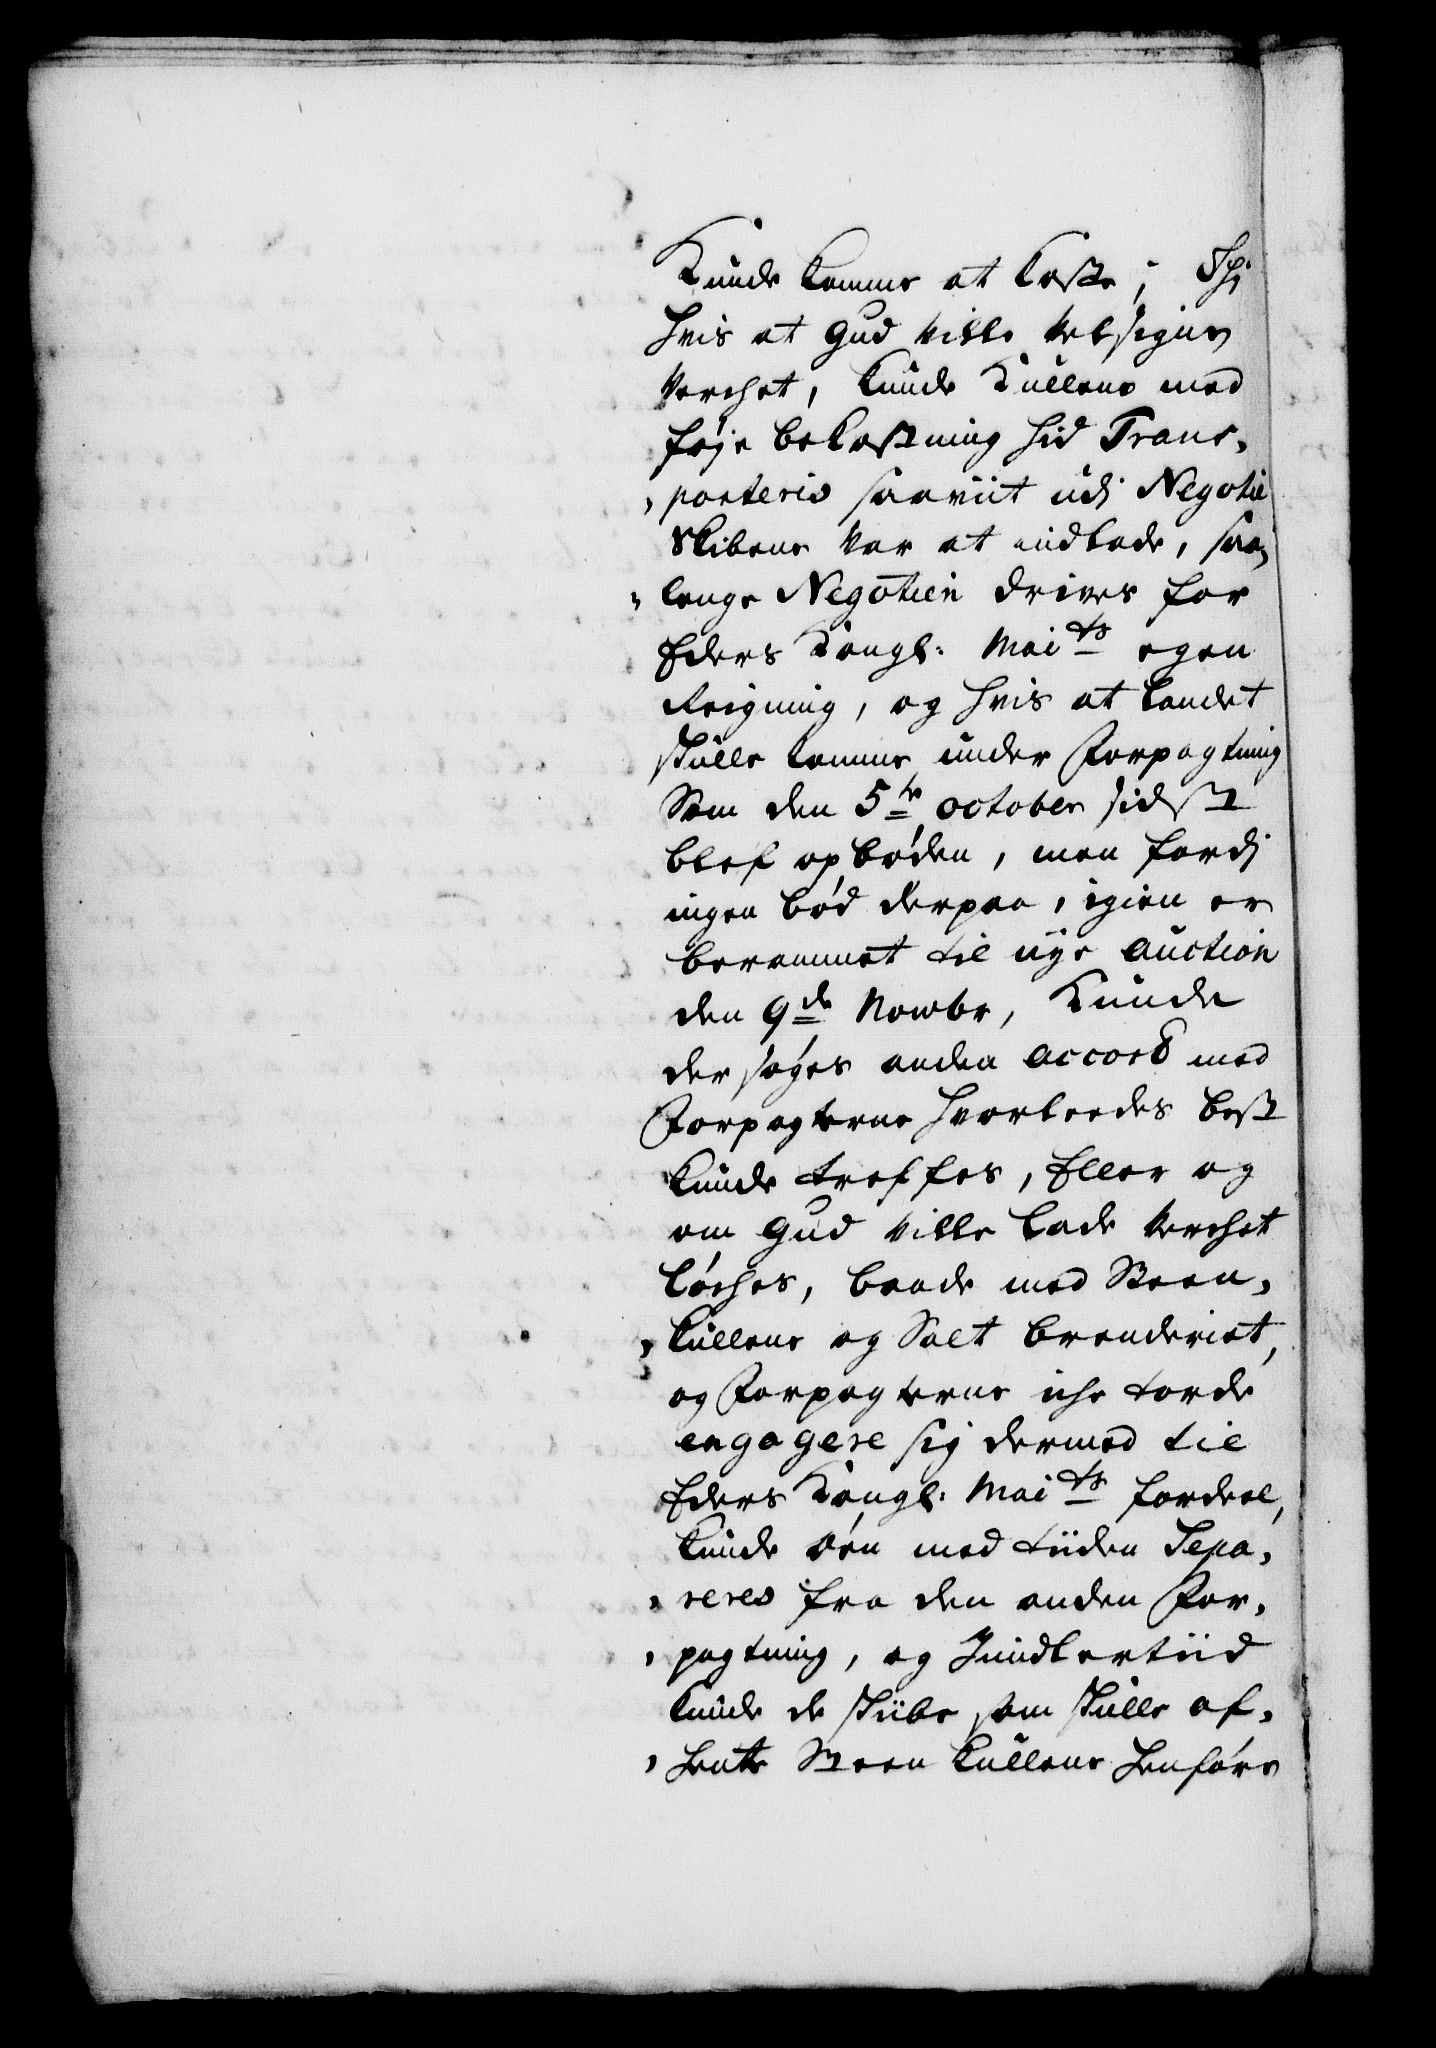 Kunde komme at koste; Thi
hvis at Gud ville velsigne
verchet, kunde Kullene med
føje bekostning hid Trans„
„porteris saaviit udj Negotie
Skibene var at indlade, saa„
„lenge Negotien drives for
Eders Kongl: Mai^ts egen
Reigning, og hvis at landet
skulle komme under Forpagtning
Som den 5^te october sidst
blef opbøden, men fordj
ingen bød derpaa, igien er
berammet til nye auction
den 9^de Novebr, Kunde
der søges anden accord med
Forpagterne hvorleedes best
kunde treffes, Eller og
om Gud ville lade verchet
løches, baade med Steen„
„kullene og Salt brenderiet,
og Forpagterne iche torde
engagere sig dermed til
Eders Kongl: Mai^ts fordeel,
kunde øen med tiiden Sepa„
„reres fra den anden For„
„pagtning, og Imidlertiid
kunde de skibe som skulle af„
„hente Steen kullene henføre